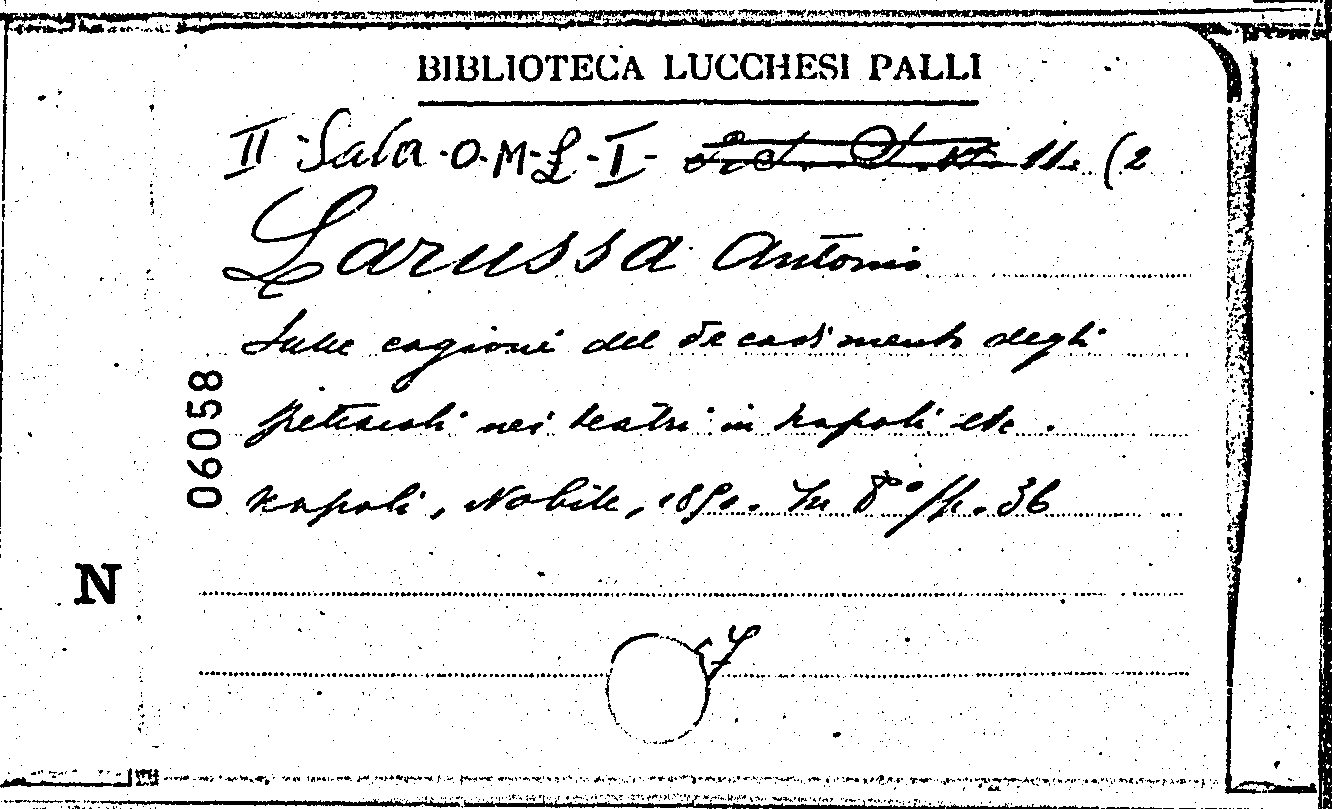 BIBLIOTECA LUCCHESI PALLI
II Sala-O-M-L-I- 11. (2
Larussa Antonio
Sulle cagioni del decadimento degli
spettacoli nei teatri in Napoli etc.
Napoli, Nobile, 1850. In 8° pp. 36
06058
N